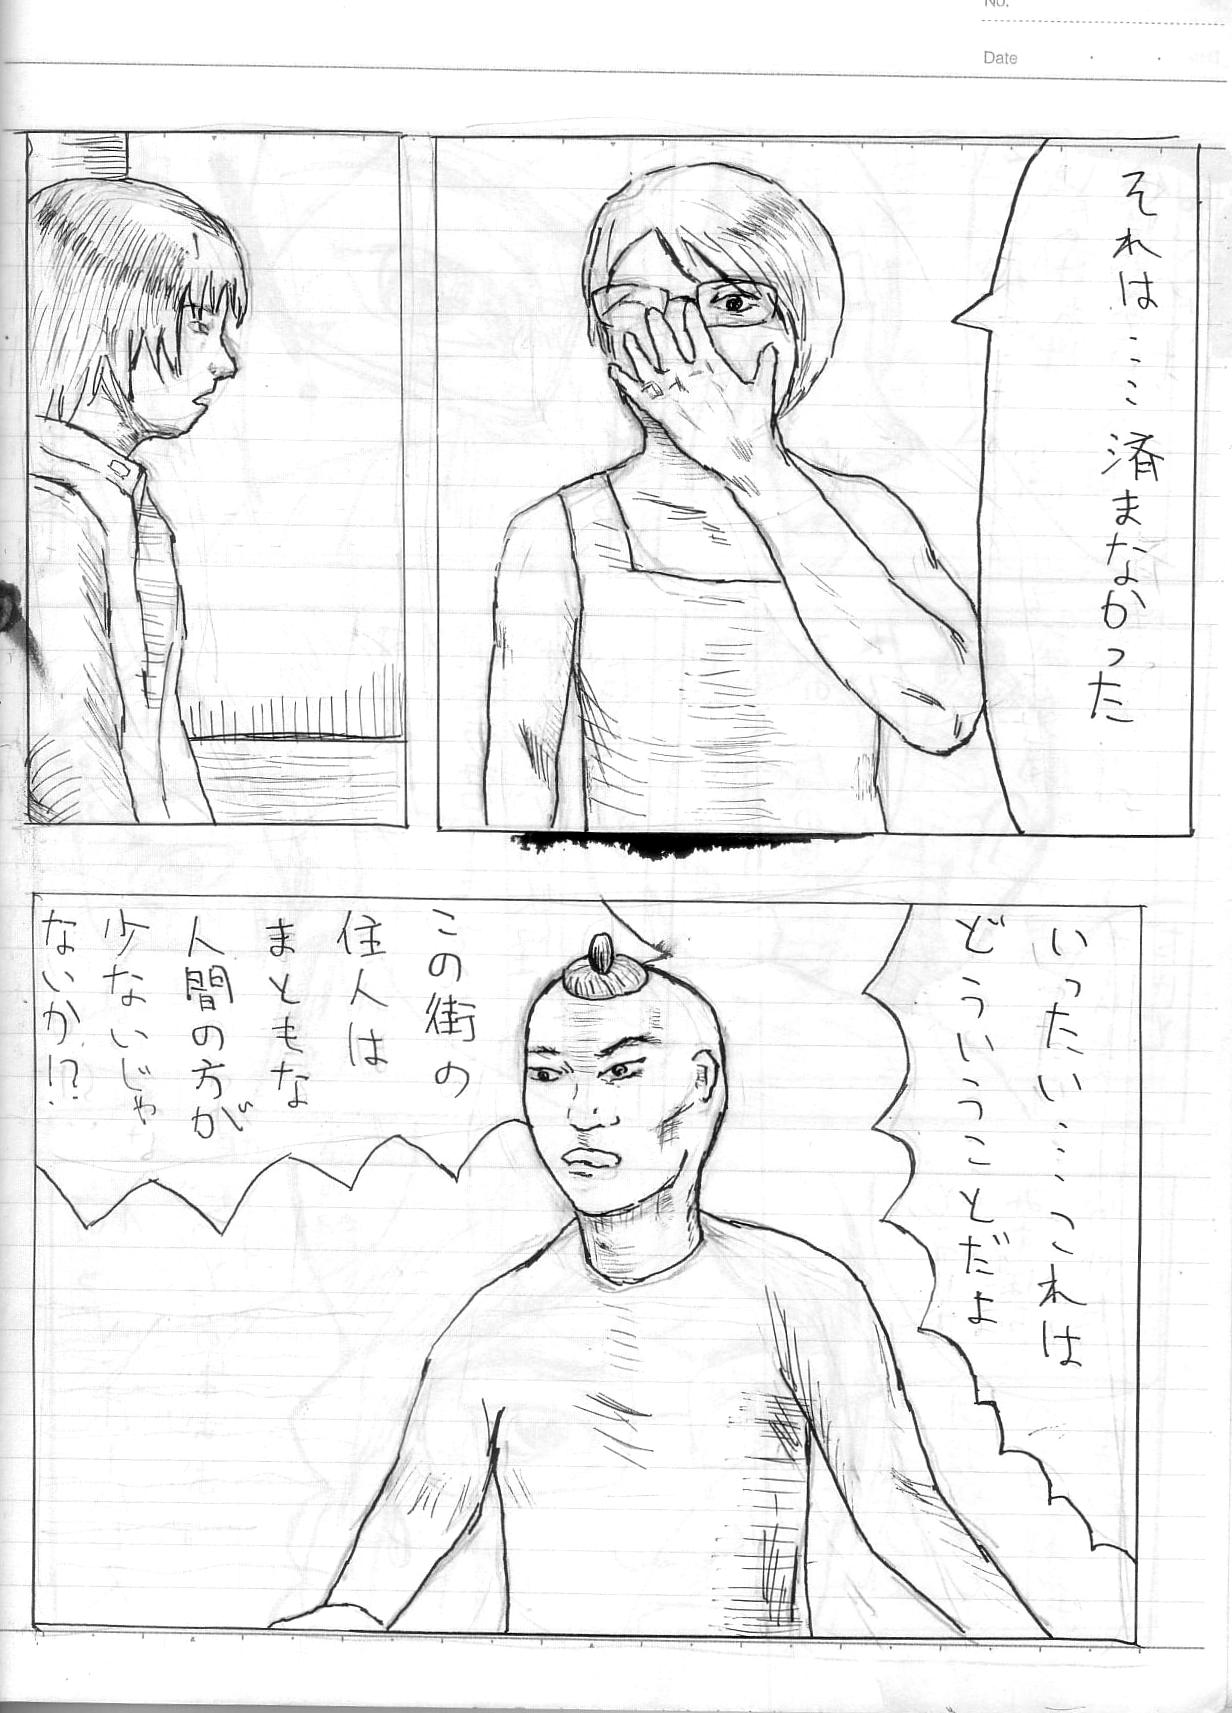 No.
Date
それは……済まなかった
いったい……これは
どういうことだよ
この街の
住人は
まともな
人間の方が
少ないじゃ
ないか!?